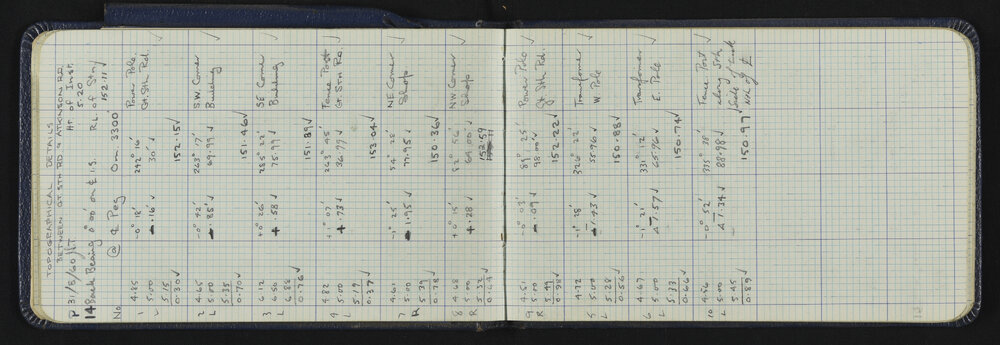 TOPOGRAPHICAL DETAILS
BETWEEN GT STH RD & ATKINSON RD.
P 31/8/60 Ht of Inst.
5.20
14 Back Bearing 0°00' on ₵ 19. RL of Stn
152.11 ✓
No @ ₵ Peg 0m. 3300'
4.85 -0° 18' 292° 16' Power Pole
1 5.00 -.16 ✓ 30' ✓ Gt. Sth Rd. ✓
L 5.15
0.30 ✓ 152.15 ✓
4.65 -0° 42' 269° 17' S.W. Corner
2 5.00 -.85 ✓ 69.99 ✓ Building ✓
L 5.35
0.70 ✓ 151.46 ✓
6.12 +0° 26' 285° 22' SE Corner
3 6.50 +.58 ✓ 75.99 ✓ Building ✓
L 6.88
0.76 ✓ 151.39 ✓
4.82 +1° 07' 263° 45' Fence Post
4 5.00 +.73 ✓ 36.99 ✓ Gt. Sth Rd ✓
L 5.19
0.37 ✓ 153.04 ✓
4.61 -1° 25' 54° 28' NE Corner
7 5.00 -1.95 ✓ 77.95 ✓ Shop ✓
R 5.39
0.78 ✓ 150.36 ✓
4.68 +0° 15' 82° 56' NW Corner
8 5.00 +.28 ✓ 64.00 ✓ Shop ✓
R 5.32 152.59
0.64 ✓
4.51 -0° 03' 89° 25' Power Pole
9 5.00 -.09 ✓ 98.00 ✓ Gt Sth Rd. ✓
R 5.49
0.98 ✓ 152.22 ✓
4.72 -1° 28' 326° 22' Transformer
5 5.00 -1.43 ✓ 55.96 ✓ W. Pole ✓
L 5.28
0.56 ✓ 150.88 ✓
4.67 -1° 21' 331° 12' Transformer
6 5.00 -1.57 ✓ 65.96 ✓ E. Pole ✓
L 5.33
0.66 ✓ 150.74 ✓
4.56 -0° 52' 335° 28' Fence Post
10 5.00 -1.34 ✓ 88.98 ✓ along Sth
L 5.45 Side of
0.89 ✓ 150.97 ✓ of ₵ ✓